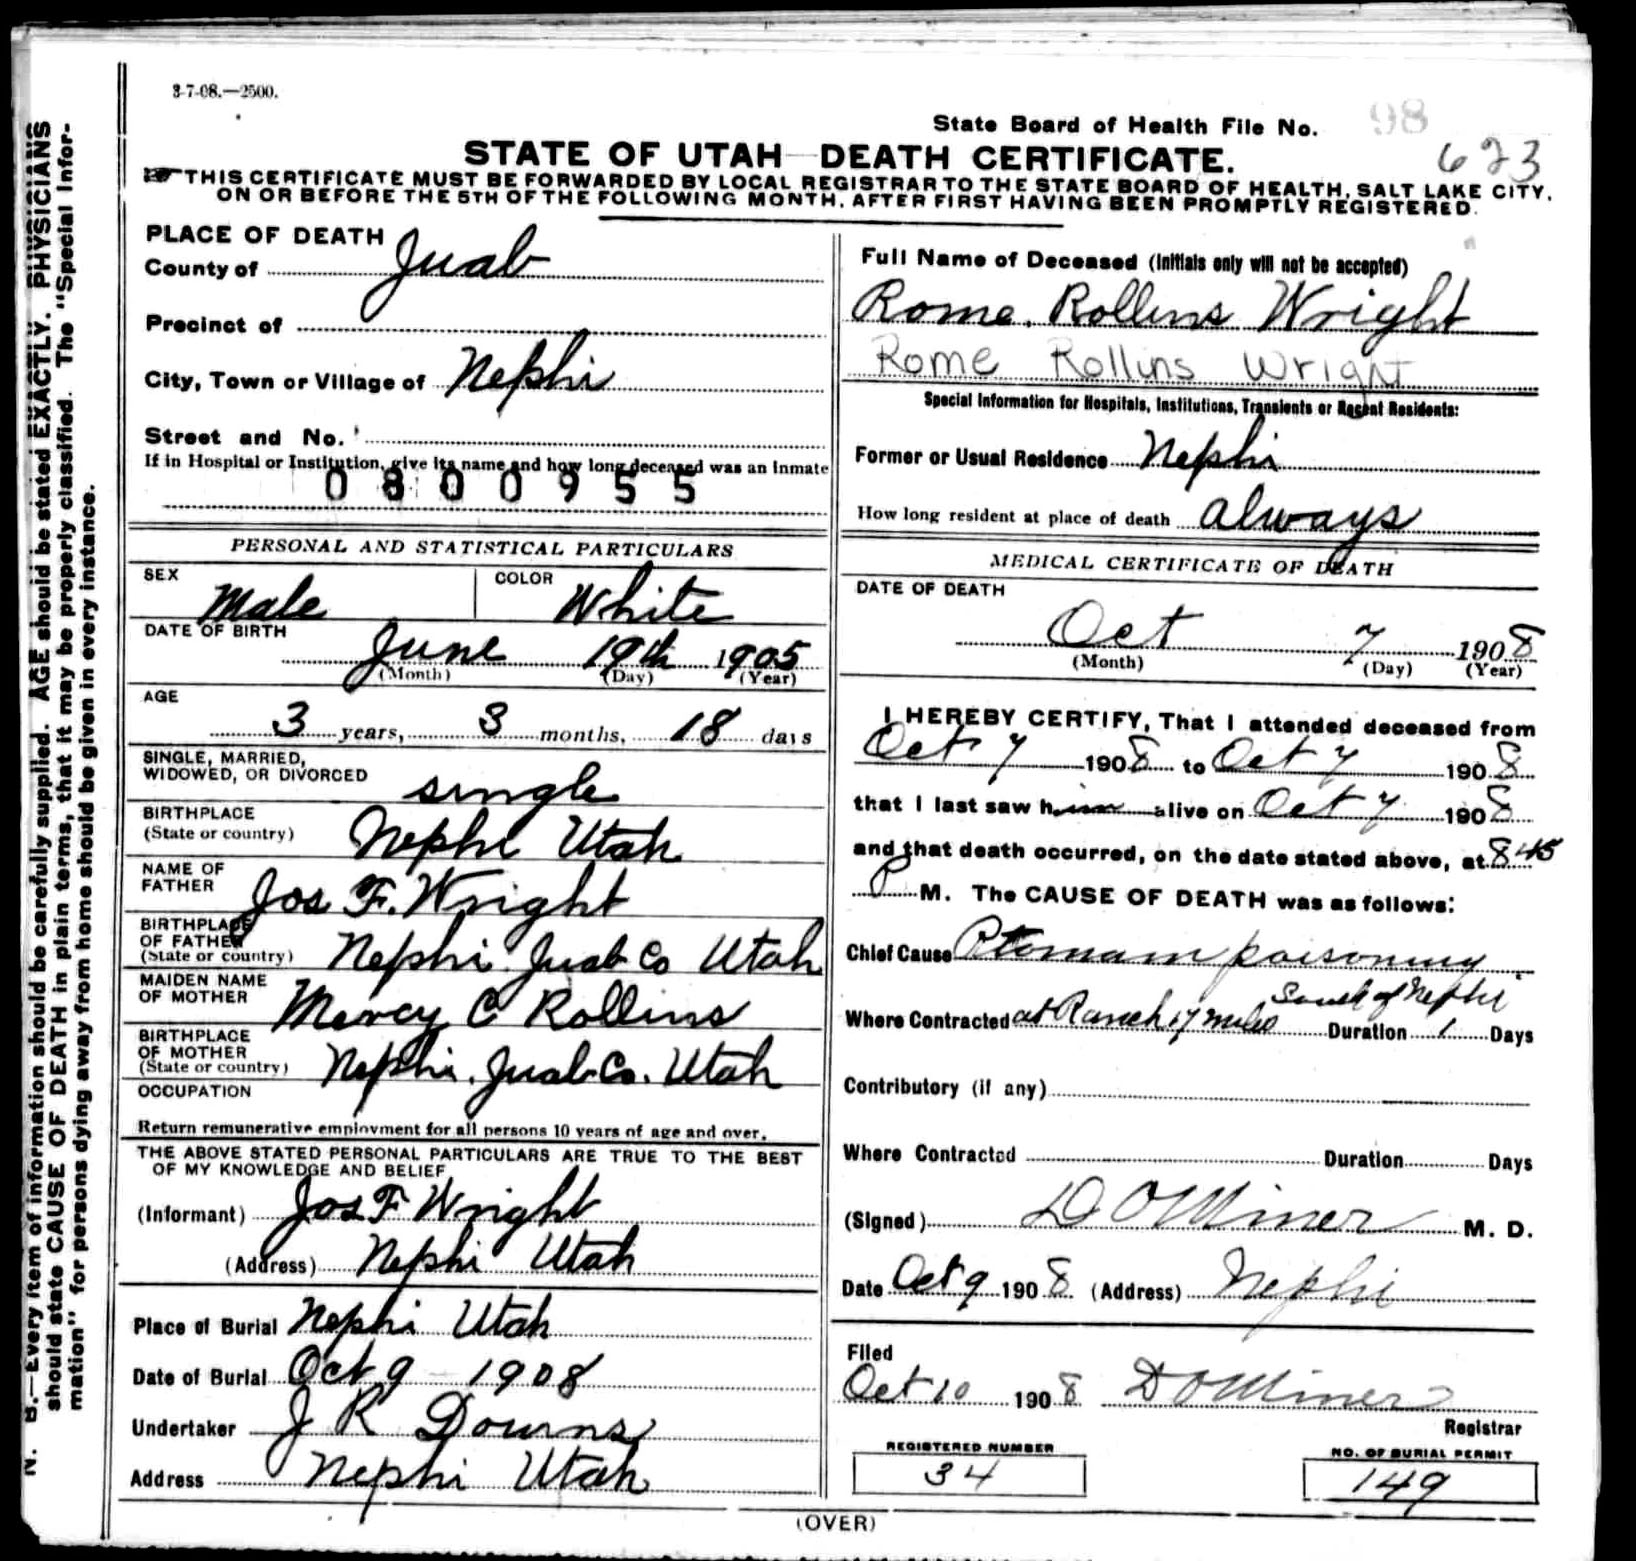 3-7-08.—2500.
State Board of Health File No. 98
623
STATE OF UTAH—DEATH CERTIFICATE.
THIS CERTIFICATE MUST BE FORWARDED BY LOCAL REGISTRAR TO THE STATE BOARD OF HEALTH, SALT LAKE CITY,
ON OR BEFORE THE 5TH OF THE FOLLOWING MONTH, AFTER FIRST HAVING BEEN PROMPTLY REGISTERED.
N. B.—Every item of information should be carefully supplied. AGE should be stated EXACTLY. PHYSICIANS
should state CAUSE OF DEATH in plain terms, that it may be properly classified. The "Special Infor-
mation" for persons dying away from home should be given in every instance.
PLACE OF DEATH
County of Juab
Precinct of
City, Town or Village of Nephi
Street and No.
If in Hospital or Institution, give its name and how long deceased was an Inmate
0800955
PERSONAL AND STATISTICAL PARTICULARS
SEX Male COLOR White
DATE OF BIRTH
June 19th 1905
(Month) (Day) (Year)
AGE
3 years, 3 months, 18 days
SINGLE, MARRIED,
WIDOWED, OR DIVORCED single
BIRTHPLACE
(State or country) Nephi Utah
NAME OF
FATHER Jos F. Wright
BIRTHPLACE
OF FATHER
(State or country) Nephi Juab Co Utah
MAIDEN NAME
OF MOTHER Mercy C Rollins
BIRTHPLACE
OF MOTHER
(State or country) Nephi. Juab Co. Utah
OCCUPATION
Return remunerative employment for all persons 10 years of age and over.
THE ABOVE STATED PERSONAL PARTICULARS ARE TRUE TO THE BEST
OF MY KNOWLEDGE AND BELIEF
(Informant) Jos F Wright
(Address) Nephi Utah
Place of Burial Nephi Utah
Date of Burial Oct 9 1908
Undertaker J R Downs
Address Nephi Utah
Full Name of Deceased (Initials only will not be accepted)
Rome. Rollins Wright
Rome Rollins Wright
Special Information for Hospitals, Institutions, Transients or Recent Residents:
Former or Usual Residence Nephi
How long resident at place of death always
MEDICAL CERTIFICATE OF DEATH
DATE OF DEATH
Oct 7 1908
(Month) (Day) (Year)
I HEREBY CERTIFY, That I attended deceased from
Oct 7 1908 to Oct 7 1908
that I last saw him alive on Oct 7 1908
and that death occurred, on the date stated above, at 8 45
P M. The CAUSE OF DEATH was as follows:
Chief Cause Ptomain poisoning
South of Nephi
Where Contracted at Ranch 17 miles Duration 1 Days
Contributory (if any)
Where Contracted Duration Days
(Signed) D O Miner M. D.
Date Oct 9 1908 (Address) Nephi
Filed
Oct 10 1908 D O Miner
Registrar
REGISTERED NUMBER
34
NO. OF BURIAL PERMIT
149
(OVER)